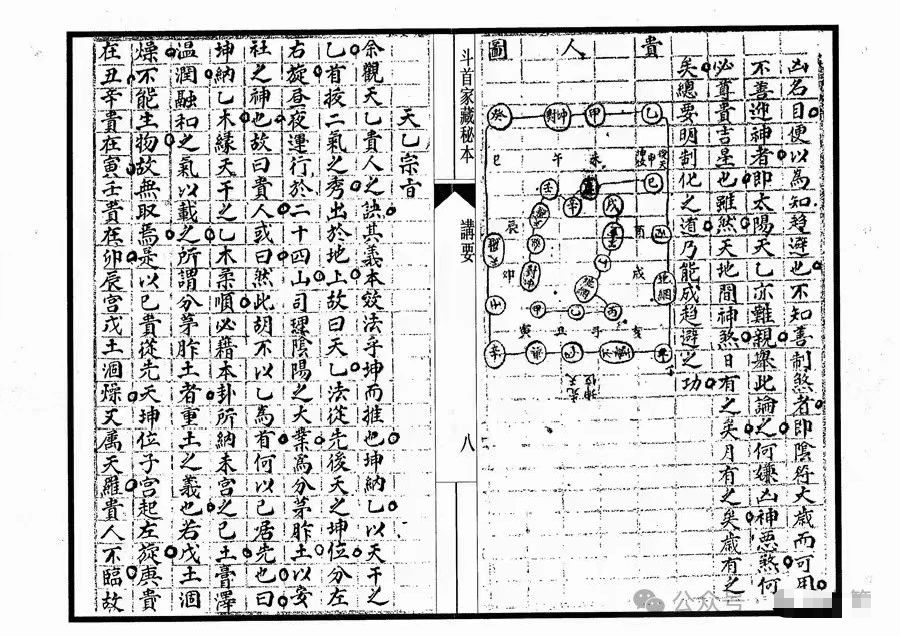 凶名目便以為知趨避也不知善制煞者即陰符大歲而可用
不善迎神者即太陽天乙亦難親舉此論之何嫌凶神惡煞何
必尊貴吉星也雖然天地間神煞日有之矣月有之矣歲有之
矣總要明制化之道乃能成趨避之功
貴人圖
癸 對冲 甲 乙
巳 午 未 申
壬 辛 戊 己
辰 酉
卯 戌
甲 乙 丙
寅 丑 子 亥
辛
先天坤位
斗首家藏秘本
講要
八
天乙宗旨
余觀天乙貴人之訣其義本效法乎坤而推也坤納乙以天干之
乙首授二氣之秀出於地上故曰天乙法從先後天之坤位分左
右旋昼夜運行於二十四山司理陰陽之大業為分茅胙土以安
社之神也故曰貴人或曰然此胡不以乙為首何以己居先也曰
坤納乙木緣天干之乙木柔順必藉本卦所納未宮之己土膏澤
温潤融和之氣以載之所謂分茅胙土者重土之義也若戊土涸
燥不能生物故無取焉是以己貴從先天坤位子宮起左旋庚貴
在丑辛貴在寅壬貴在卯辰宮戊土涸燥又属天羅貴人不臨故
公众号